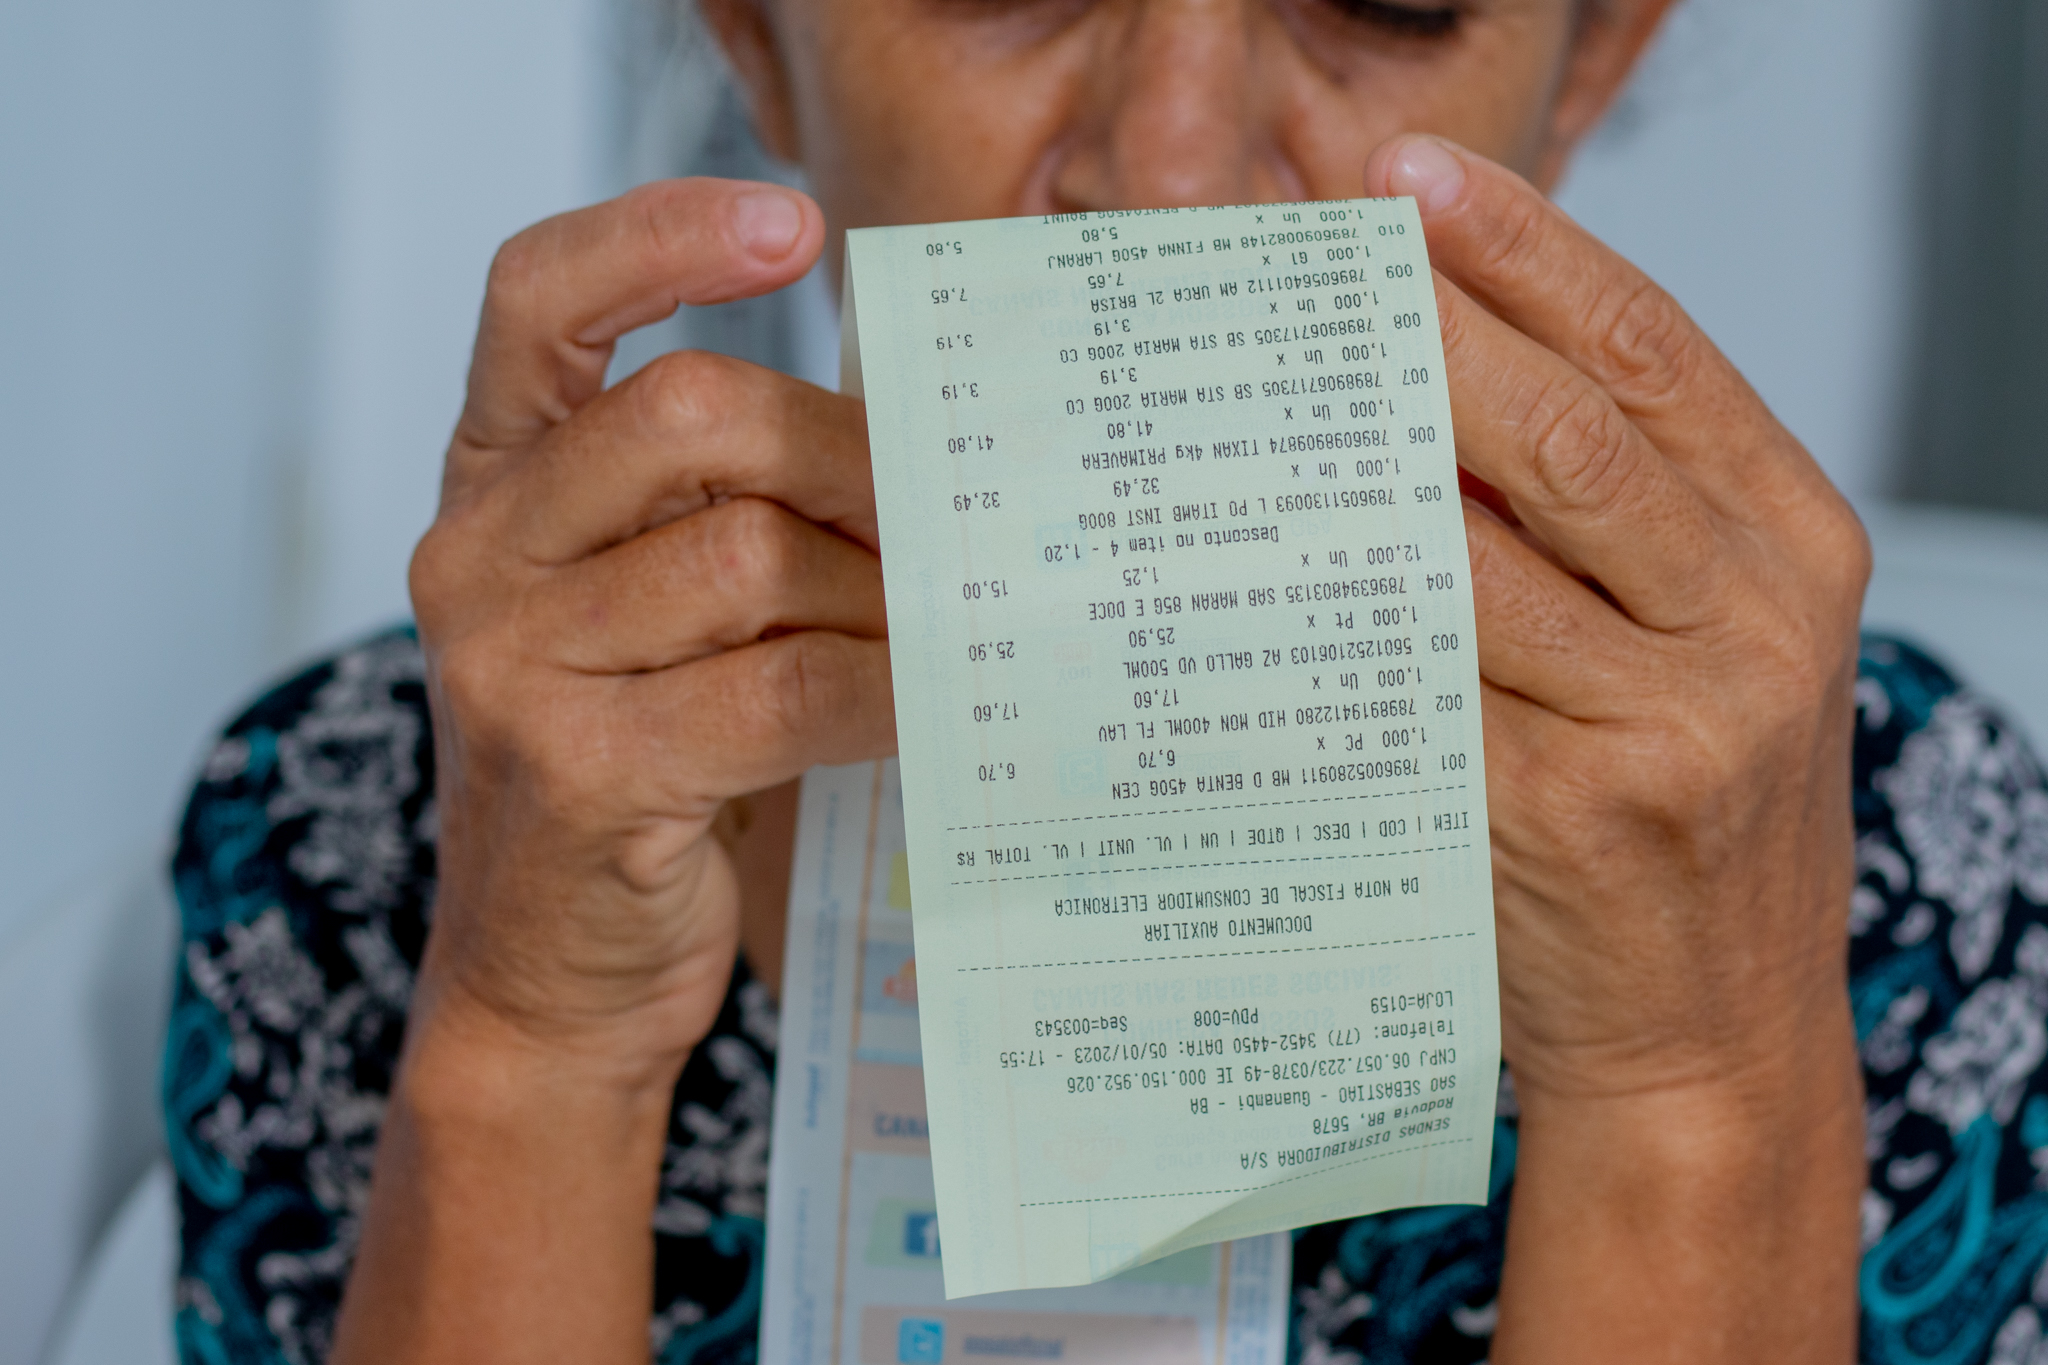 SENDAS DISTRIBUIDORA S/A
Rodovia BR, 5678
SAO SEBASTIAO - Guanambi - BA
CNPJ 06.057.223/0378-49 IE 000.150.952.026
Telefone: (77) 3452-4450 DATA: 05/01/2023 - 17:55
LOJA=0159 PDV=008 Seq=003543
DOCUMENTO AUXILIAR
DA NOTA FISCAL DE CONSUMIDOR ELETRONICA
ITEM | COD | DESC | QTDE | UN | VL. UNIT | VL. TOTAL R$
001 7896005280911 MB D BENTA 450G CEN
1,000 PC x 6,70 6,70
002 7898919412280 HID MON 400ML FL LAV
1,000 Un x 17,60 17,60
003 5601252106103 AZ GALLO VD 500ML
1,000 Pt x 25,90 25,90
004 7896394803135 SAB MARAN 85G E DOCE
12,000 Un x 1,25 15,00
Desconto no item 4 - 1,20
005 7896051130093 L PO ITAMB INST 800G
1,000 Un x 32,49 32,49
006 7896098909874 TIXAN 4kg PRIMAVERA
1,000 Un x 41,80 41,80
007 7898906717305 SB STA MARIA 200G CO
1,000 Un x 3,19 3,19
008 7898906717305 SB STA MARIA 200G CO
1,000 Un x 3,19 3,19
009 7896056401112 AM URCA 2L BRISA
1,000 G1 x 7,65 7,65
010 7896090082148 MB FINNA 450G LARANJ
1,000 Un x 5,80 5,80